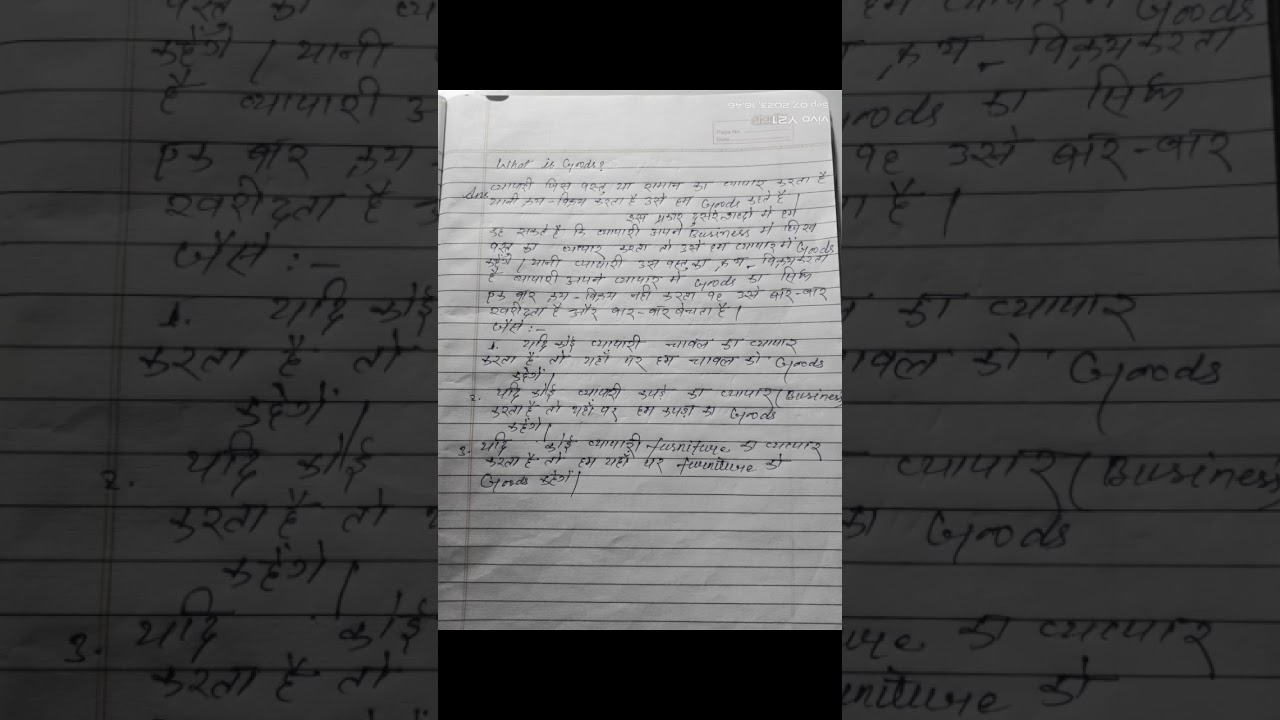 What is Goods?
Ans व्यापारी जिस वस्तु या समान का व्यापार करता है
यानी क्रय-विक्रय करता है उसे हम Goods कहते है।
इस प्रकार दुसरे शब्दो में हम
कह सकते है कि व्यापारी अपने Business में जिस
वस्तु का व्यापार करता तो उसे हम व्यापार में Goods
कहेंगे। यानी व्यापारी उस वस्तु का क्रय-विक्रय करता
है व्यापारी अपने व्यापार में Goods का सिर्फ
एक बार क्रय-विक्रय नही करता वह उसे बार-बार
खरीदता है और बार-बार बेचता है।
जैसे :-
1. यदि कोई व्यापारी चावल का व्यापार
करता है तो यहाँ पर हम चावल को Goods
कहेंगे।
2. यदि कोई व्यापारी कपड़े का व्यापार (Business
करता है तो यहाँ पर हम कपड़ा को Goods
कहेंगे।
3. यदि कोई व्यापारी furniture का व्यापार
करता है तो हम यहाँ पर furniture को
Goods कहेंगे।
Page No.
Date
vivo Y21
Sep 07, 2023, 16:46